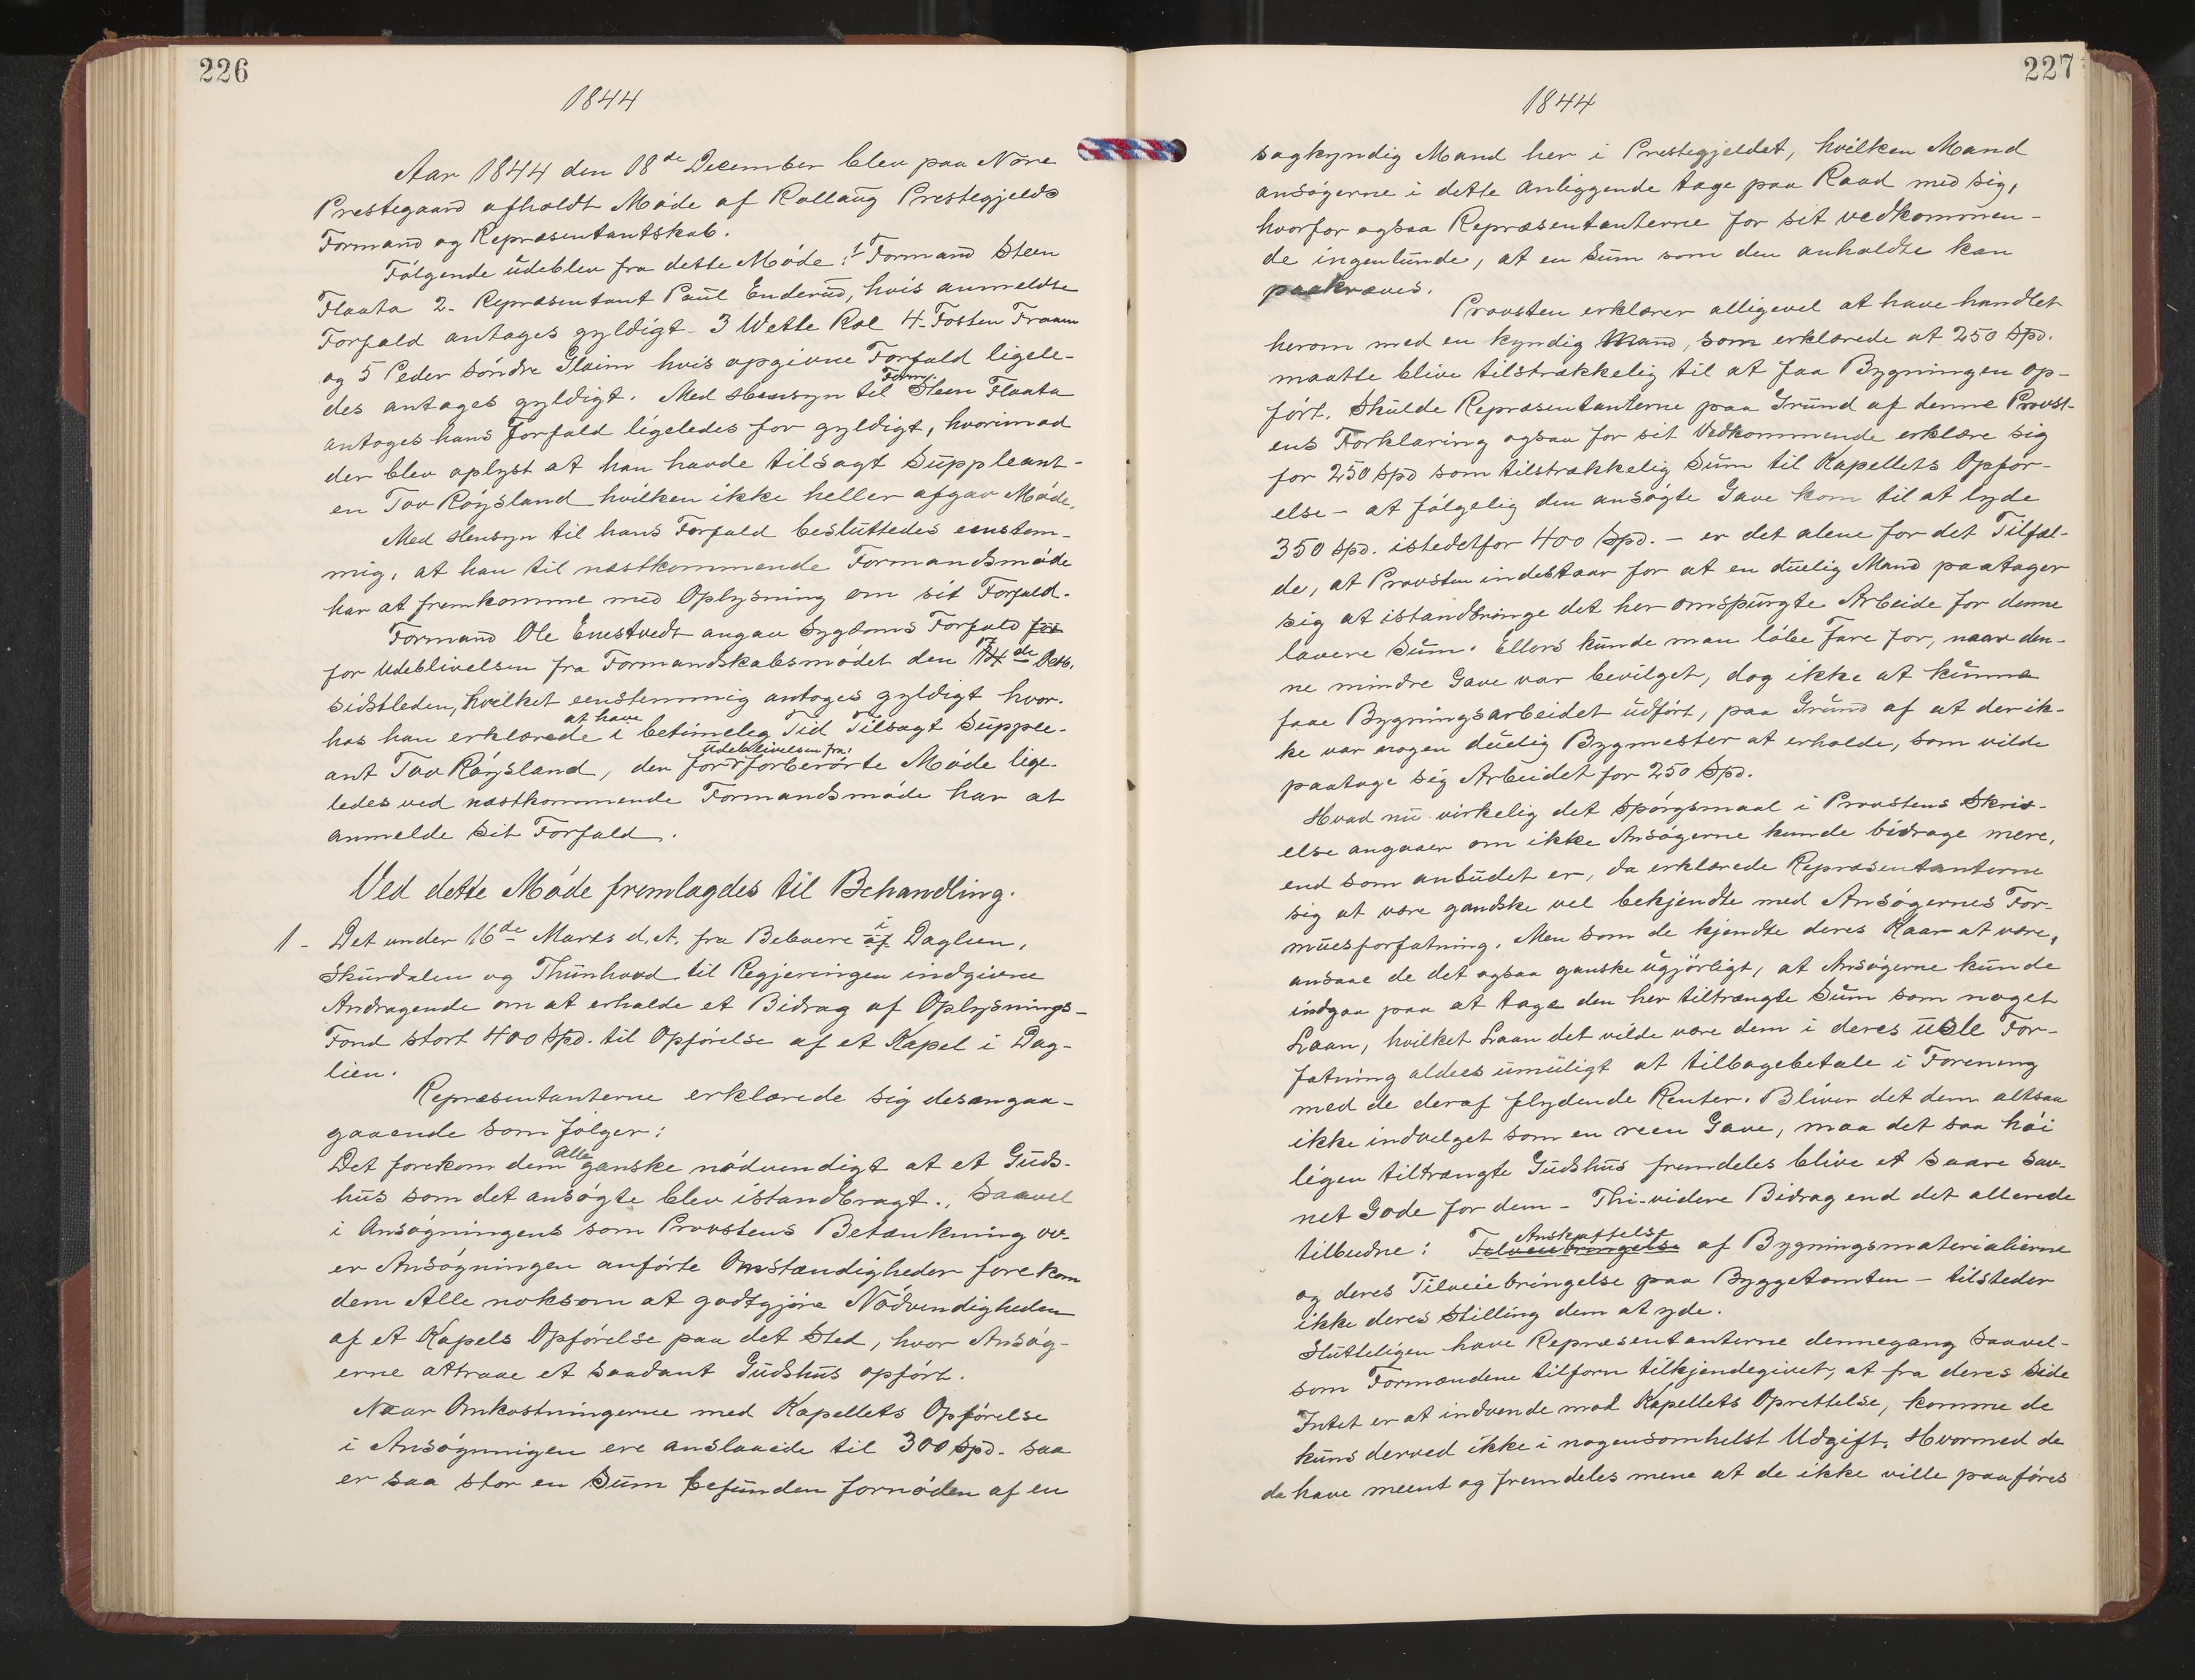 226
1844
Aar 1844 den 18de December blev paa Nore
Prestegaard afholdt Møde af Rollaug Prestegjelds
Formand og Repræsentantskab.
Følgende udeblev fra dette Møde: 1 Formand Steen
Flaata 2. Repræsentant Paul Enderud, hvis anmeldte
Forfald antages gyldigt. 3 Wette Roe 4. Tosten Traaen
og 5 Peder Søndre Gloim hvis opgivne Forfald ligele-
des antages gyldigt. Med Hensyn til Form. Steen Flaata
antoges hans Forfald ligeledes for gyldigt, hvorimod
der blev oplyst at han havde tilsagt Suppleant-
en Tov Røysland hvilken ikke heller afgav Møde.
Med Hensyn til hans Forfald besluttedes eenstem-
mig, at han til næstkommende Formandsmøde
har at fremkomme med Oplysning om sit Forfald.
Formand Ole Enestvedt angav Sygdoms Forfald for
for Udeblivelsen fra Formandskabsmødet den 17de Octb.
sidstleden, hvilket eenstemmig antoges gyldigt hvor-
hos han erklærede at have i betimeleg Tid Tilsagt Supple-
ant Tov Røysland, der for Udeblivelsen fra forberørte Møde lige-
ledes ved næstkommende Formandsmøde har at
anmelde sit Forfald.
Ved dette Møde fremlagdes til Behandling.
1 - Det under 16de Marts d. A. fra Beboere af i Daglien,
Skurdalen og Thunhovd til Regjeringen indgivne
Andragende om at erholde et Bidrag af Oplysnings-
Fond stort 400 Spd. til Opførelse af et Kapel i Dag-
lien.
Repræsentanterne erklærede sig desangaa-
gaaende som følger:
Det forekom dem Alle ganske nødvendigt at et Guds-
hus som det ansøgte blev istandbragt., Saavel
i Ansøgningens som Provstens Betænkning ov-
er Ansøgningen anførte Omstændigheder forekom
dem Alle noksom at godtgjøre Nødvendigheden
af et Kapels Opførelse paa det Sted, hvor Ansøg-
erne attraae et saadant Gudshus opført.
Naar Omkostningerne med Kapellets Opførelse
i Ansøgnnigen ere anslaaede til 300 Spd. saa
er saa stor en Sum befunden fornøden af en
227
1844
sagkyndig Mand her i Prestegjeldet, hvilken Mand
ansøgerne i dette Anliggende tage paa Raad med sig,
hvorfor ogsaa Repræsentanterne for sit vedkommen-
de ingenlunde, at en Sum som den anholdte kan
paakræves.
Provsten erklærer alligevel at have handlet
herom med en kyndig Mand, som erklærede at 250 Spd.
maatte blive tilstrækkelig til at faa Bygningen op-
ført. Skulde Repræsentanterne paa Grund af denne Provst-
ens Forklaring ogsaa for sit Vedkommende erklære sig
for 250 Spd som tilstrækkelig Sum til Kapellets Opfør-
else - at følgelig den ansøgte Gave kom til at lyde
350 Spd. istedetfor 400 Spd. - er det alene for det Tilfæl-
de, at Provsten indestaar for at en duelig Mand paatager
sig at istandbringe det her omspurgte Arbeide for denne
lavere Sum. Ellers kunde man løbe Fare for, naar den-
ne mindre Gave var bevilget, dog ikke at kunne
faae Bygningsarbeidet udført, paa Grund af at der ik-
ke var nogen duelig Bygmester at erholde, som vilde
paatage sig Arbeidet for 250 Spd.
Hvad nu virkelig det Spørgsmaal i Provstens Skriv-
else angaaer om ikke Ansøgerne kunde bidrage mere,
end som anbudet er, da erklærede Repræsentanterne
sig at være gandske vel bekjendte med Ansøgernes For-
muesforfatning. Men som de kjendte deres Kaar at være,
ansaae de det ogsaa ganske ugjørligt, at Ansøgerne kunde
indgaa paa at tage den her tiltrængte Sum som noget
Laan, hvilket Laan det vilde være dem i deres usle For-
fatning aldees umuligt at tilbagebetale i Forening
med de deraf flydende Renter. Bliver det dem altsaa
ikke indvelget som en reen Gave, maa det saa høi
ligen tiltrængte Gudshus fremdeles blive et saare sav-
net Gode for dem - Thi-videre Bidrag end det allerede
tilbudne: Tilveiebringelse Anskaffelse af Bygningsmaterialierne
og deres Tilveiebringelse paa Byggetomten - tilsteder
ikke deres Stilling dem at yde.
Slutteligen have Repræsentanterne dennegang saavel-
som Formændene tilforn tilkjendegivet, at fra deres Side
Intet er at indvende mod Kapellets Oprettelse, komme de
kuns derved ikke i nogensomhelst Udgift. Hvormed de
da have meent og fremdeles mene at de ikke ville paaføres